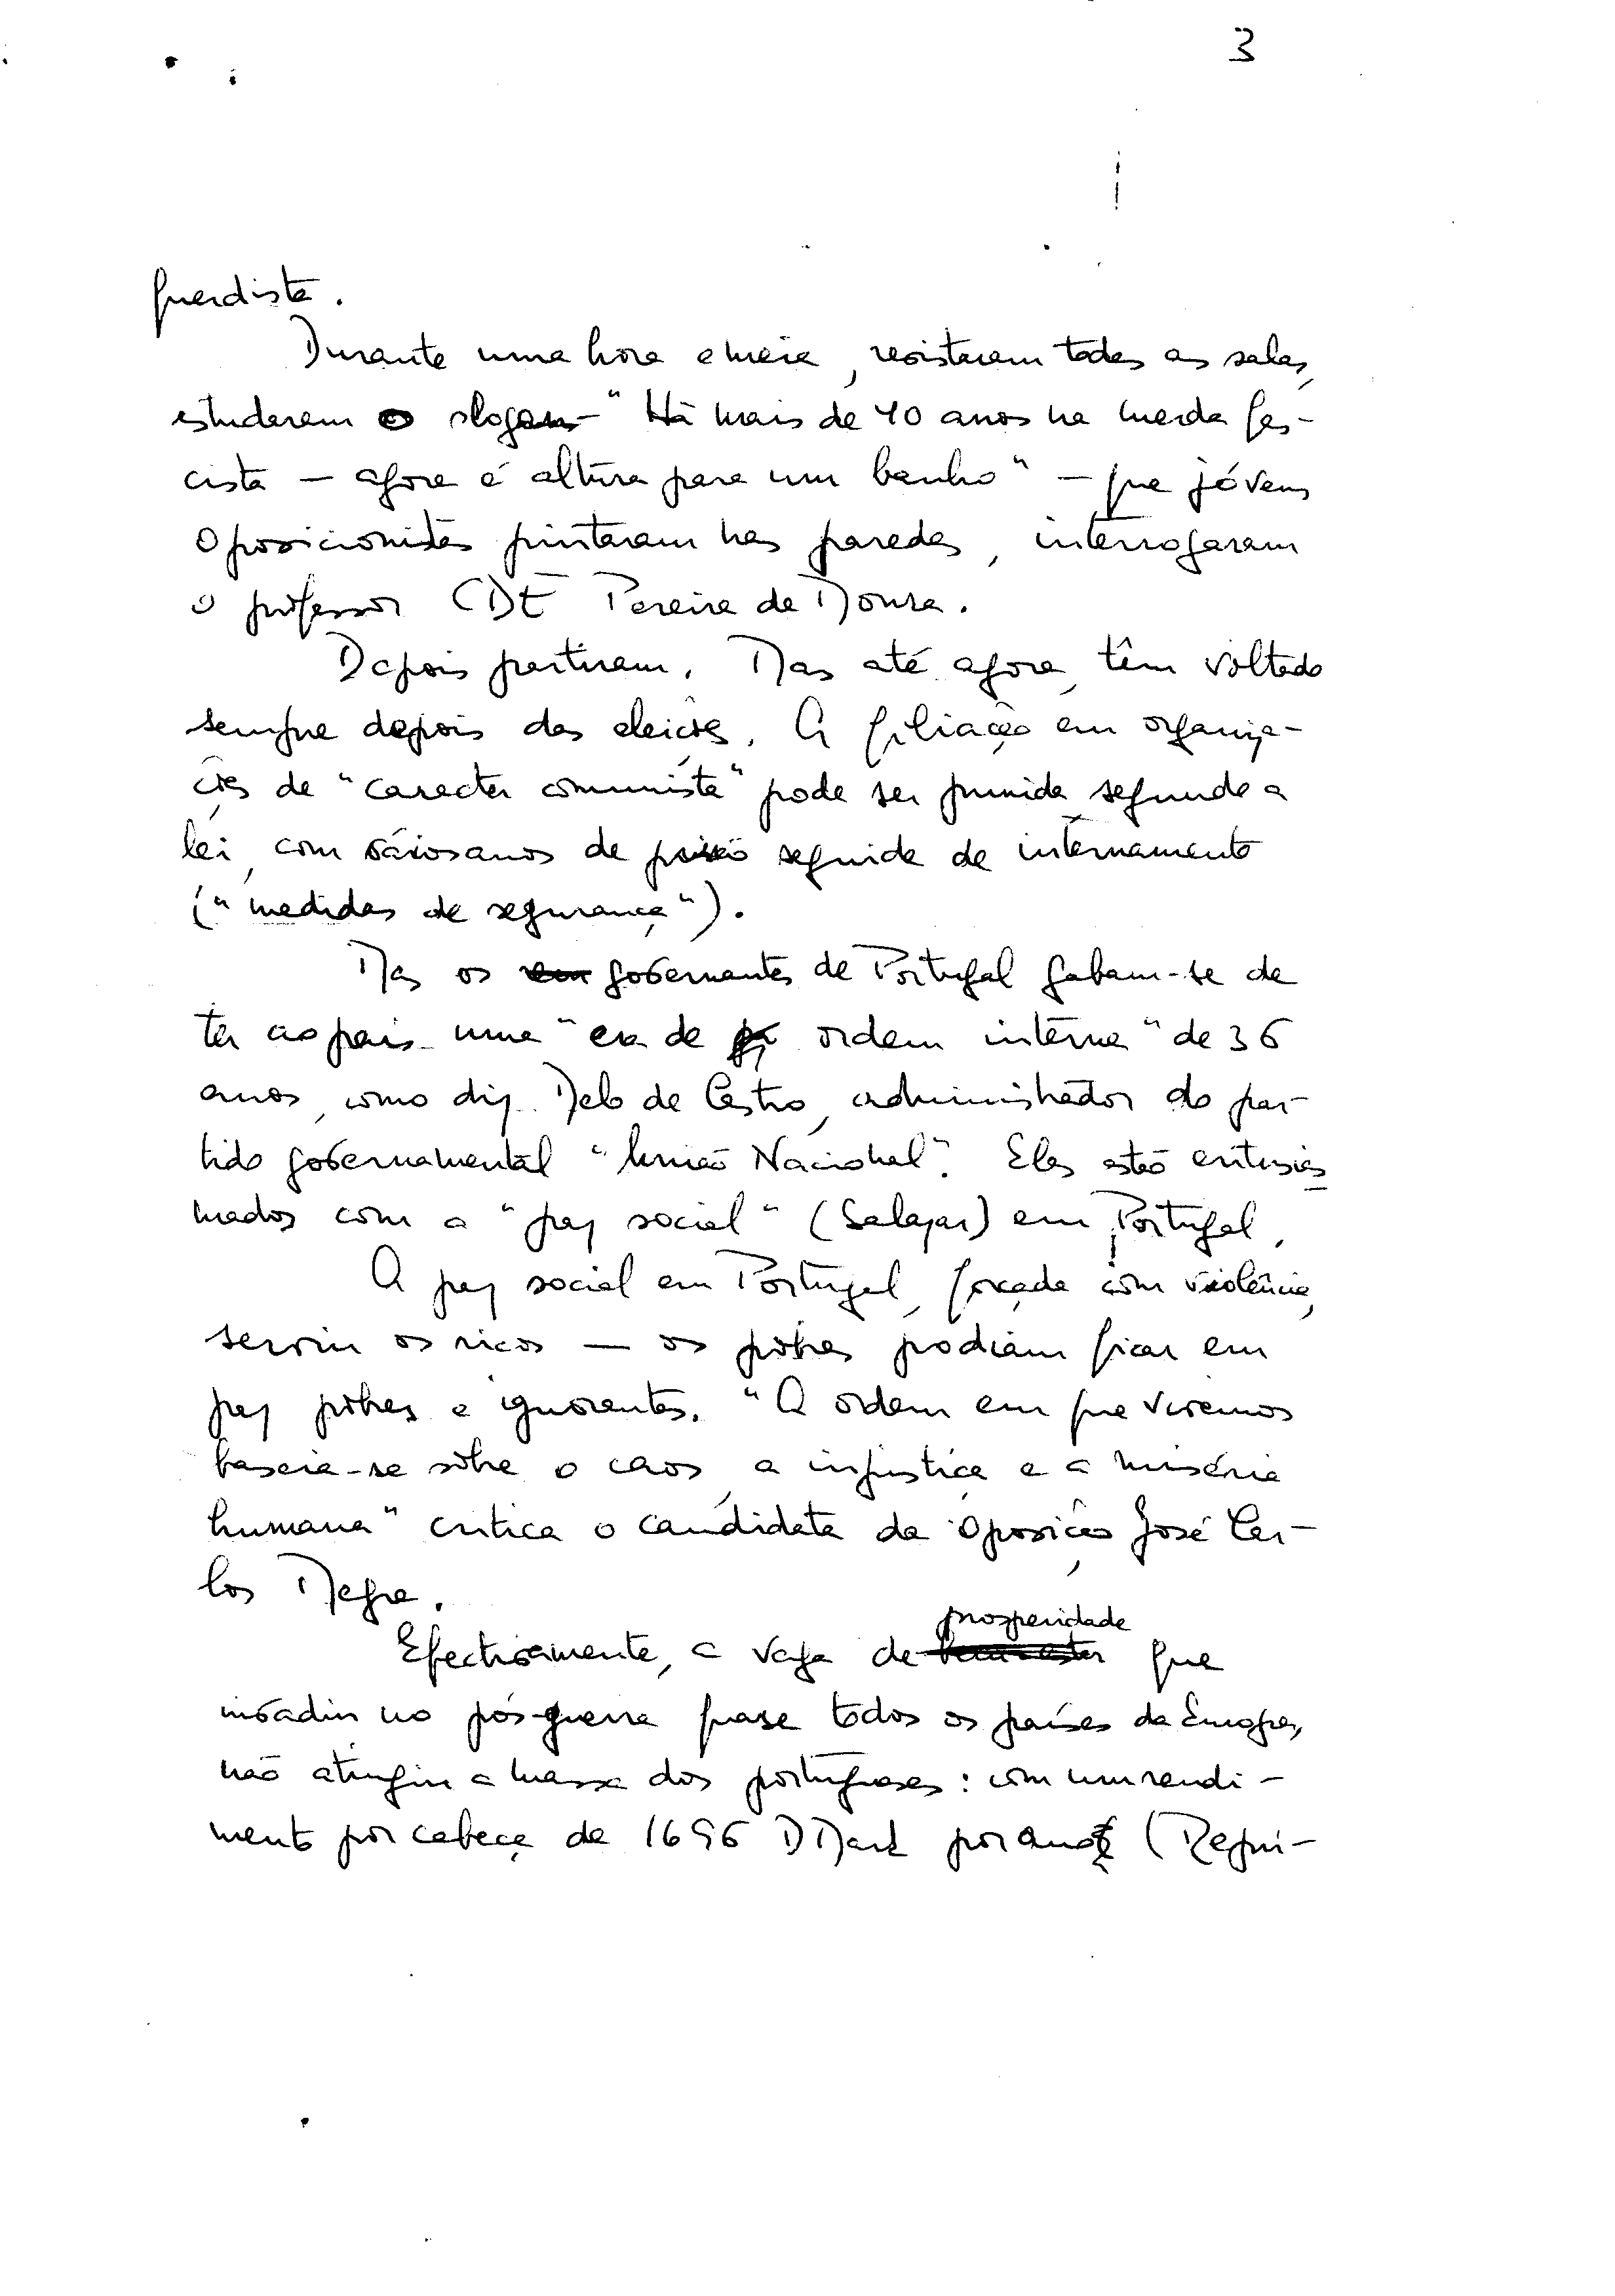 3
querdista.
Durante uma hora e meia, revistaram todas as salas,
estudaram o slogan - "Há mais de 40 anos na merda fas-
cista - agora é altura para um banho" - que jóvens
oposicionistas pintaram nas paredes, interrogaram
o professor CDE Pereira de Moura.
Depois partiram. Mas até agora, têm voltado
sempre depois das eleições. A filiação em organiza-
ções de "caracter comunista" pode ser punida segundo a
lei, com vários anos de prisão seguida de internamento
("medidas de segurança").
Mas os governantes de Portugal gabam-se de
ter ao pais uma "era de ordem interna" de 36
anos, como diz Melo de Castro, administrador do par-
tido governamental "União Nacional". Eles estão entusias
mados com a "paz social" (Salazar) em Portugal.
A paz social em Portugal, forçada com violência,
serviu os ricos - os pobres podiam ficar em
paz pobres e ignorantes. "A ordem em que vivemos
baseia-se sôbre o caos, a injustiça e a miséria
humana" critica o candidato da Oposição José Car-
los Megre.
prosperidade
Efectivamente, a vaga de que
invadiu no pós-guerra quase todos os países da Europa,
não atingiu a massa dos portugueses: com um rendi-
mento por cabeça de 1696 DMark por ano (Repú-